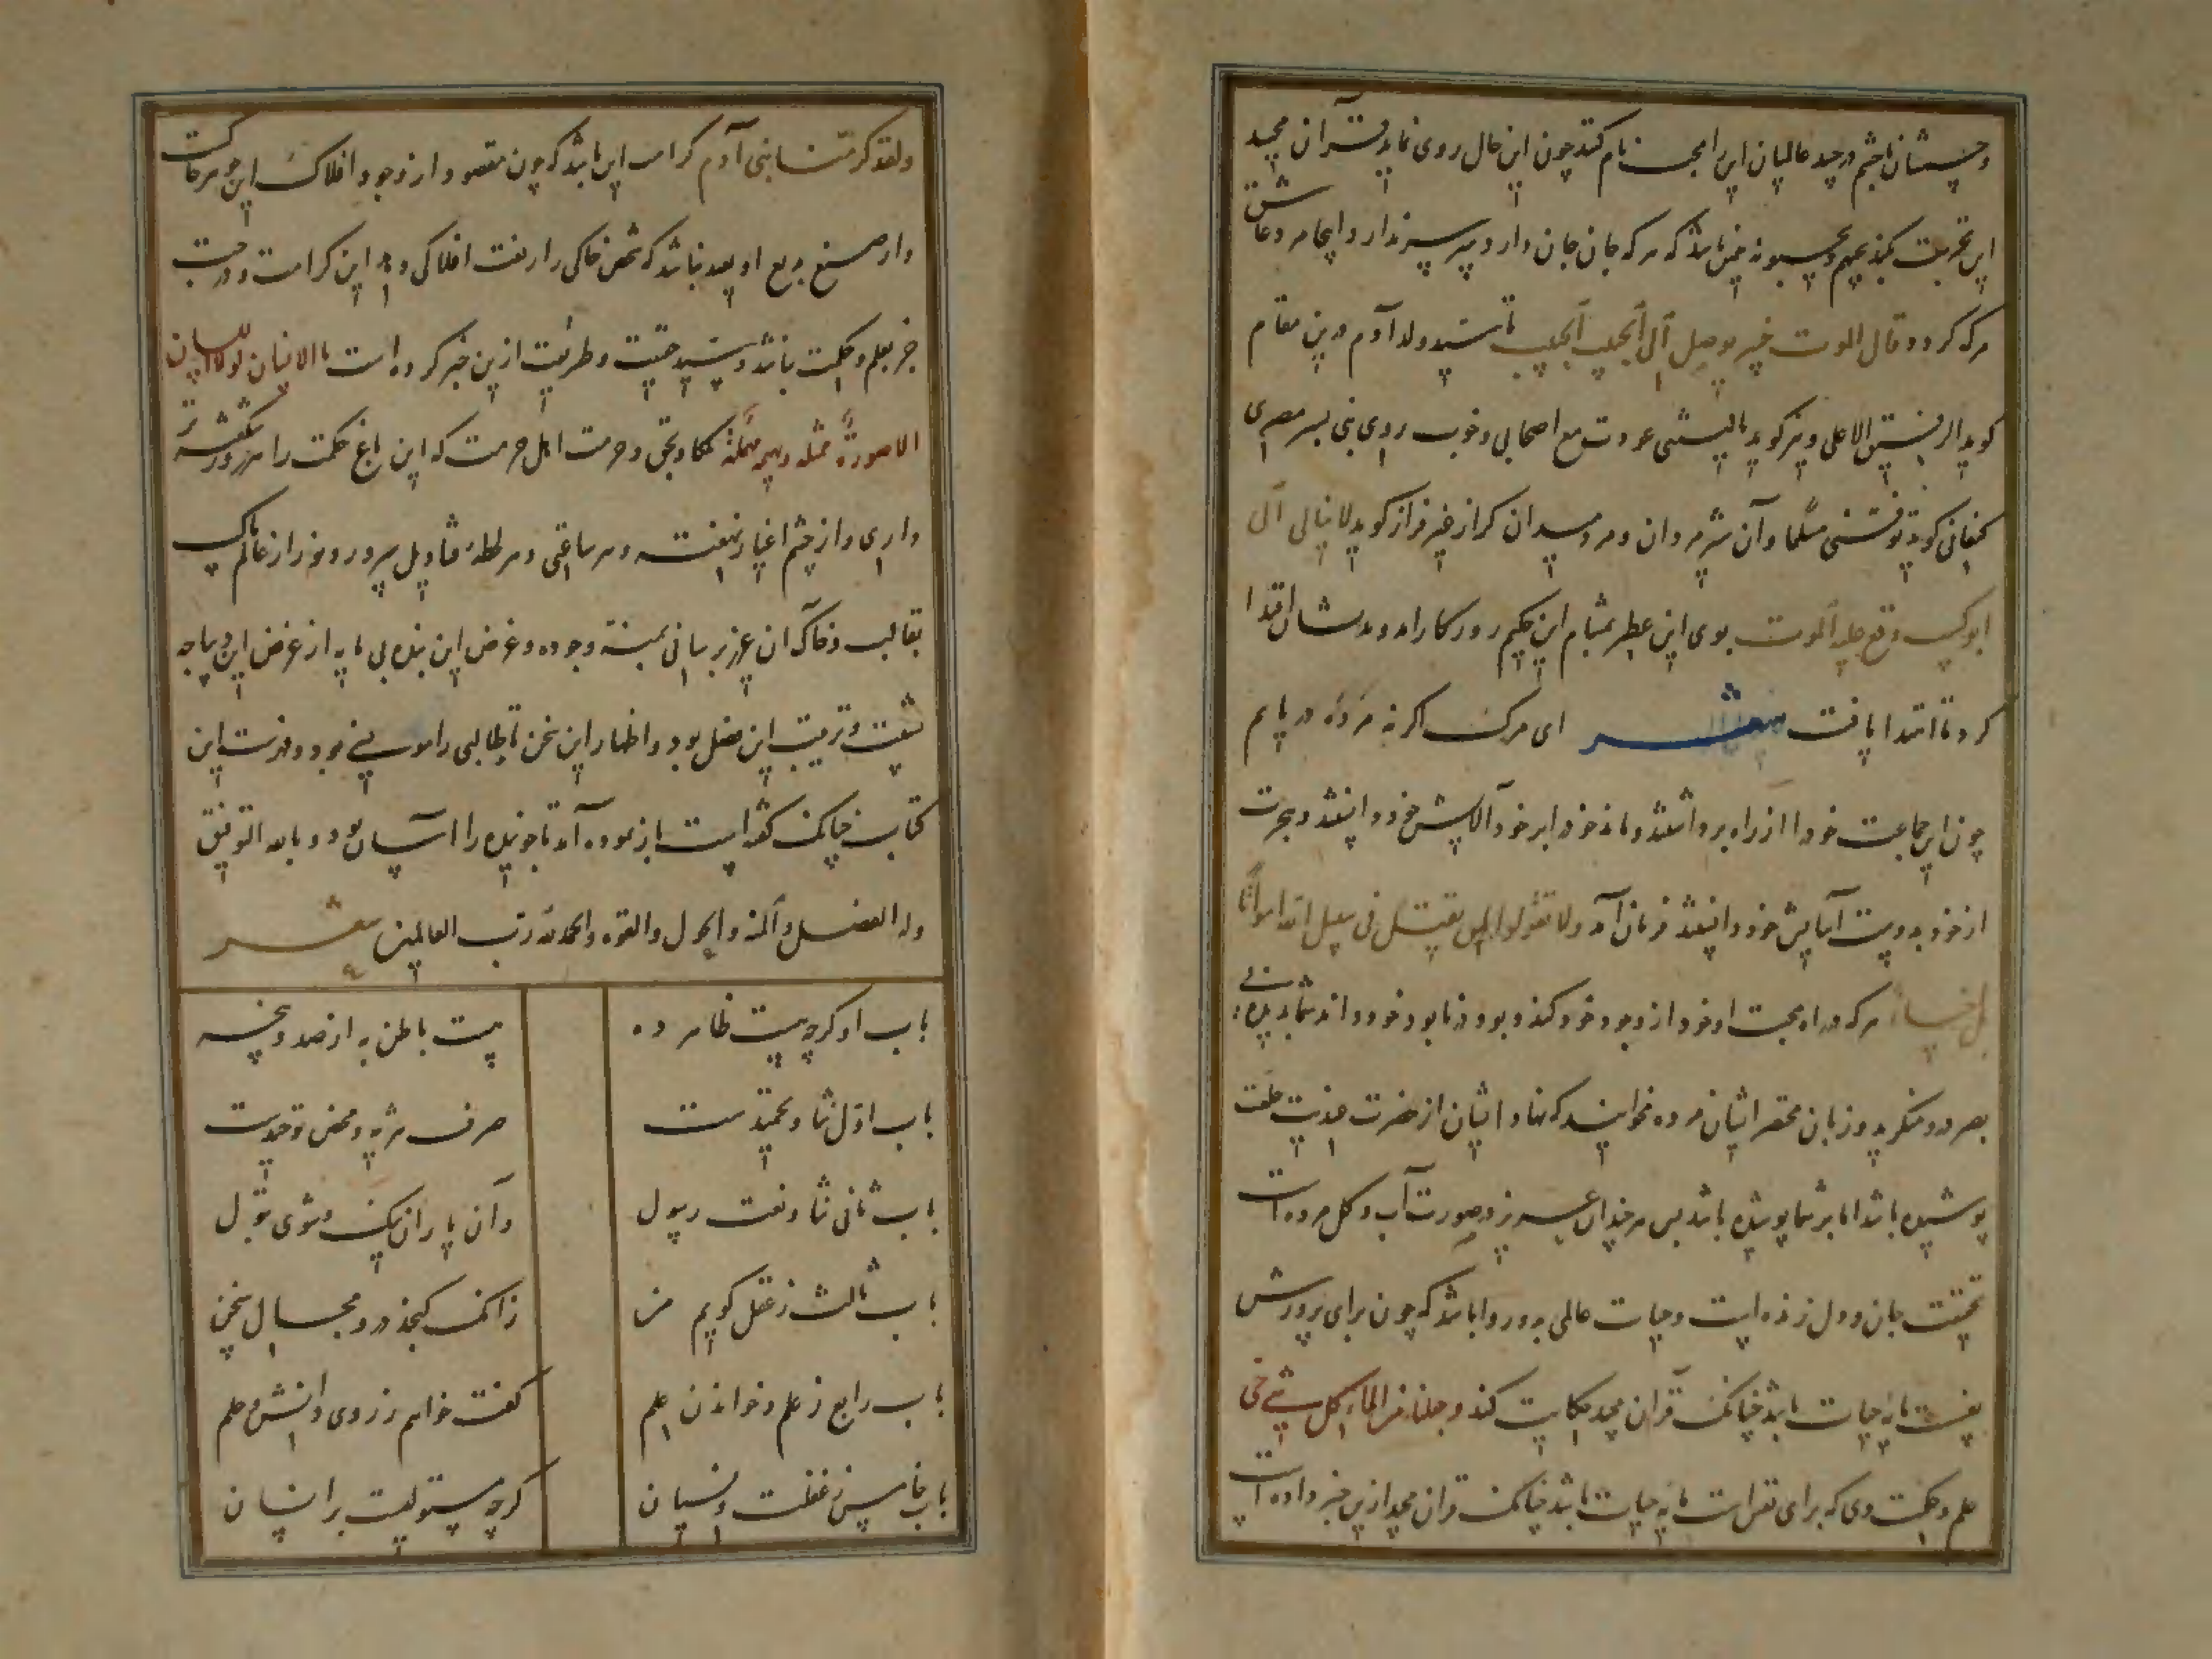 این تحریفت کند یحبهم و یحبونه چنین باشد که هر که جان جان دارد سپر سپر ندارد و اینجا مر دعاش
مرکه کردد و قال الموت خیر یوصل الی الحبیب الحبیب تا سید ولد آدم درین مقام
کوید الرفیق الاعلی و نیز کوید یا لیتنی غودرت مع اصحابی و خوب روی بنی بسر مصری
کنعانی کوید توفنی مسلما و آن شیر مردان و مرد میدان کراز خیر فراز کوید لا یبالی الی
ابوکم وقع علیه الموت بوی این عطر بمشام این حکیم روزکار آمد و بدیشان اقتدا
کرد تا اقتدا یافت شعر ای مرک اکر نه مرده دریابم
چون این جماعت خود را از راه برداشتند و ماند خود ابر خود آلایش خود دانستند و بحرت
از خود بدوست آسایش خود دانستند فرمان آمد ولا تقولوا لمن یقتل فی سبیل الله امواتا
بل احیاء هرکه در راه محبت او خود از وجود خود کند و بود در نابود خود داند شما بدیده بی
بصر درو منکرید و زبان مختصر ایشان مرده مخوانید که نهاد ایشان از حضرت صمدیت خلعت
پوشیده باشد اما بر شما پوشیده باشد پس هر چند آن عزیز در صورت آب و کل مرده است
بحقیقت جان و دل زنده است و حیات عالمی بدو روا باشد که چون برای پرورش
نفست مایه حیات باشد چنانک قرآن مجید حکایت کند وجعلنا من الماء کل شیء حی
علم و حکمت وی که برای تقراست مایه حیات باشد چنانک قرآن مجید ازین خبر داده است
ولقد کرمنا بنی آدم کرامت این باشد که چون مقصود از وجود افلاک این جوهر خاکست
و از صنع بدیع او بعید نباشد که شخص خاکی را رفعت افلاکی دهد این کرامت و رتبت
جز بعلم و حکمت نباشد و سید حقیقت و طریقت ازین خبر کرده است ما الانسان لولا اللسان
الا صورة ممثلة و بهیمة مهملة حکما و بحق و حرمت اهل حرمت که این باغ حکمت را هر روز شکفته تر
داری و از چشم اغیار نهفته و هر ساعتی و هر لحظه قنادیل سرور و نور از عالم پاک
بقالب و خاک آن عزیز برسانی بمنه وجوده و غرض این بنده بی مایه از غرض این دیباجه
نشیب و ترتیب این فصل بود و اظهار این سخن تا طالبی را مونسی بود و فهرست این
کتاب چنانک کفته است باز نموده آمد تا خواننده را آسان بود و بالله التوفیق
وله الفضل والمنة والحول والقوة والحمدلله رب العالمین شعر
باب او کرچه بیت ظاهر ده    بیت باطن به از صد و پنجه
باب اول ثنا و تحمیدست    صرف تنزیه و محض توحیدست
باب ثانی ثنا و نعت رسول    و آن یاران نیک و شوی بتول
باب ثالث ز عقل کویم من    زانک کنجد درو مجال سخن
باب رابع ز علم و خواندن علم    کفت خواهم ز روی دانش و حلم
باب خامس ز غفلت و نسیان    کرچه مستولیت بر انسان